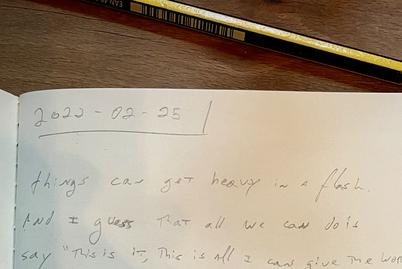 EAN
2022-02-25
things can get heavy in a flash.
And I guess that all we can do is
say "This is it, This is all I can give the wor